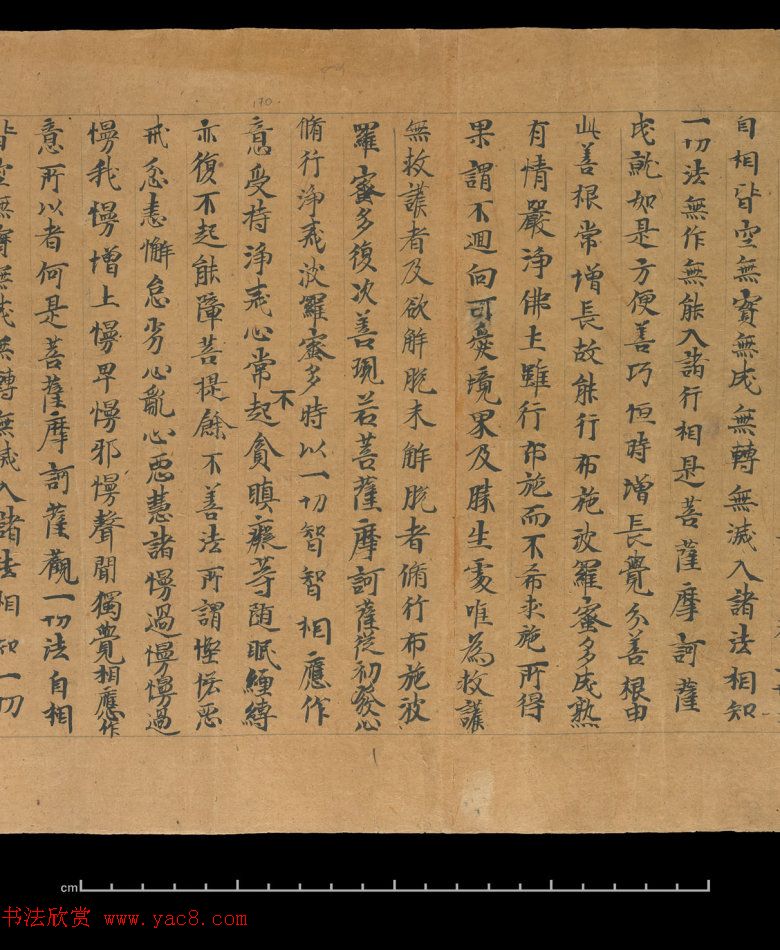 自相皆空無實無成無轉無滅入諸法相知
一切法無作無能入諸行相是菩薩摩訶薩
成就如是方便善巧恒時增長覺分善根由
此善根常增長故能行布施波羅蜜多成熟
有情嚴淨佛土雖行布施而不希求施所得
果謂不迴向可愛境界及勝生處唯為救護
無救護者及欲解脫未解脫者脩行布施波
羅蜜多復次善現若菩薩摩訶薩從初發心
脩行淨戒波羅蜜多時以一切智智相應作
意受持淨戒心常不起貪瞋癡等隨眠纏縛
亦復不起能障菩提餘不善法所謂慳悋惡
戒忿恚懈怠劣心亂心惡慧諸慢過慢慢過
慢我慢增上慢卑慢邪慢聲聞獨覺相應作
意所以者何是菩薩摩訶薩觀一切法自相
皆空無實無成無轉無滅入諸法相知一切
170
cm
书法欣赏 www.yac8.com